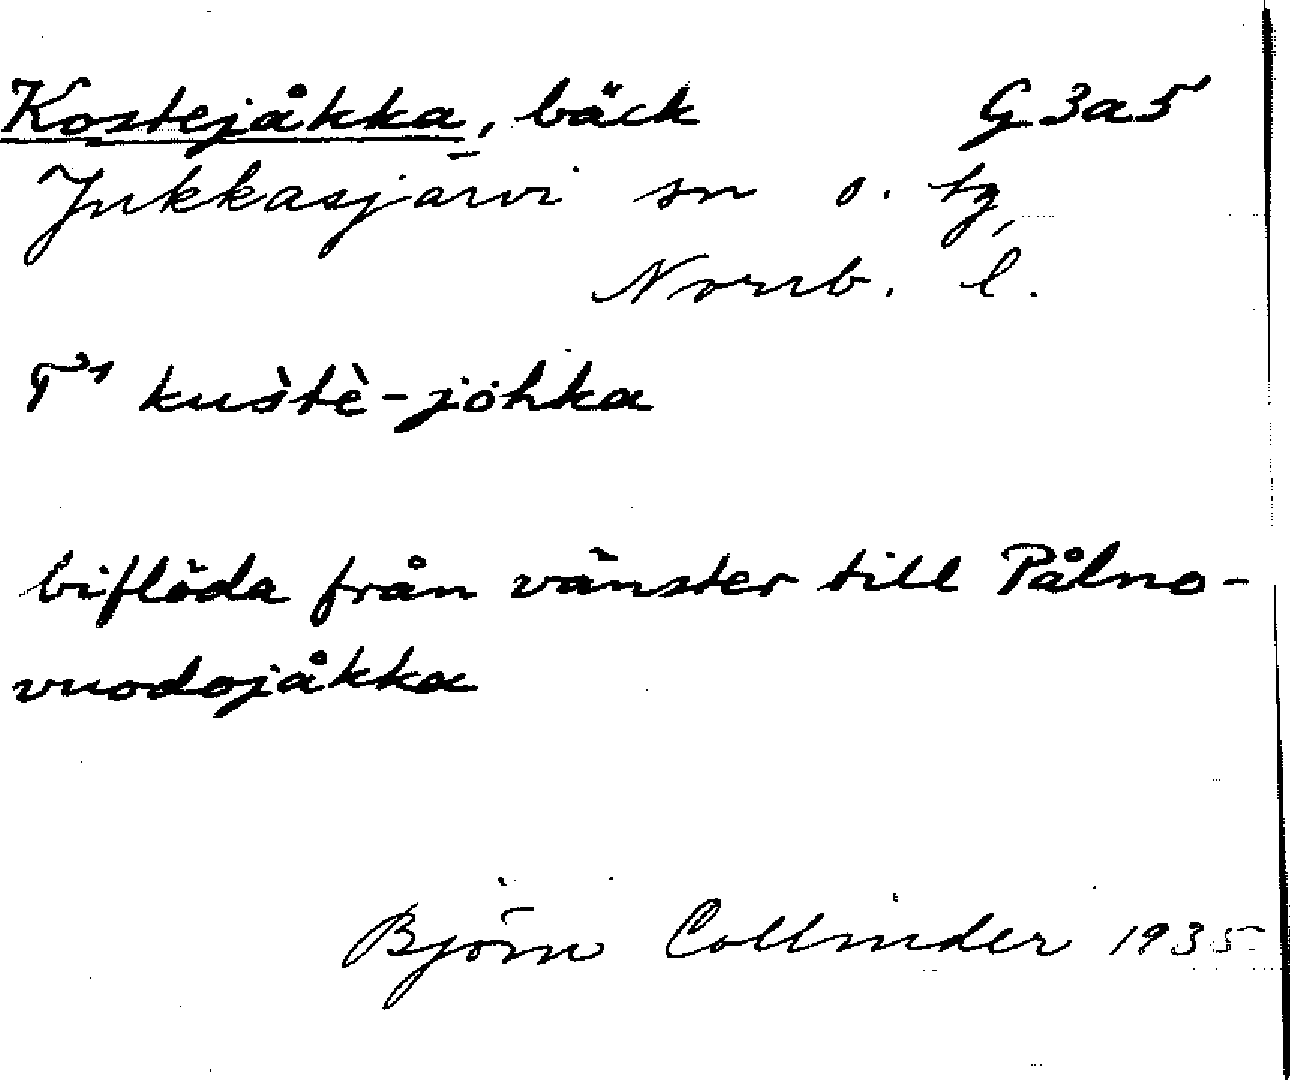 Kostejåkka, bäck G3a5
Jukkasjärvi sn o. tg,
Norrb. l.
T¹ kuštè-johka
biflöda från vänster till Pålno-
vuodojåkka
Björn Collinder 1935